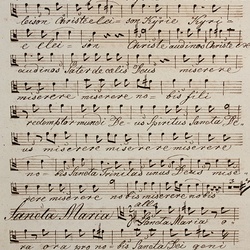 leison Christe elei - son Kyrie Kyri -
e elei - son Christe audi nos Christe ex
audi nos Pater de celis Deus miserere
miserere miserere no - bis fili
redemptor mundi De - us Spiritus Sancte De -
us miserere miserere mi - serere
no - bis Sancta Trinitas unus Deus mise
rere miserere nobis miserere nobis
Sancta Maria Sancta Maria o -
ra ora pro no - bis Sancta Dei geni